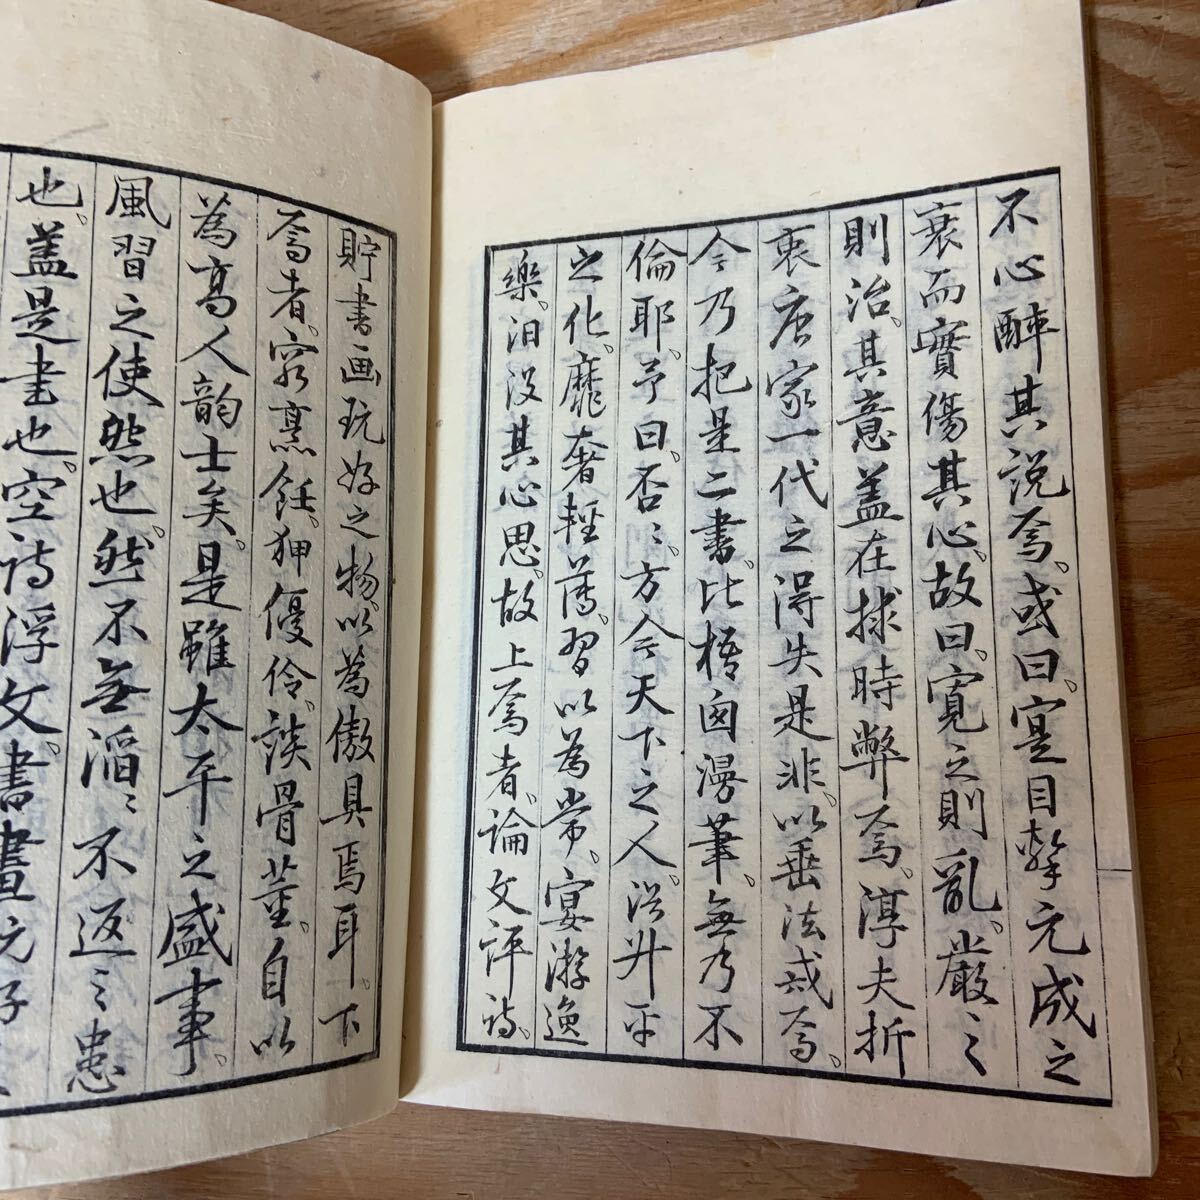 不心醉其説焉。或曰。寔目擊元成之
衰而實傷其心。故曰。寛之則亂。嚴之
則治。其意蓋在捄時弊焉。淳夫折
衷唐家一代之得失是非。以垂法戒焉。
今乃把是二書。比梧囱漫筆。無乃不
倫耶。予曰。否〻。方今天下之人。浴升平
之化。靡奢輕薄。習以為常。宴游逸
樂。汨没其心思。故上焉者。論文評詩。
貯書画玩好之物。以爲傲具焉耳。下
焉者。窮烹飪。狎優伶。談骨董。自以
為高人韵士矣。是雖太平之盛事。
風習之使然也。然不無滔〻不返之患
也。蓋是書也。空詩浮文。書畫